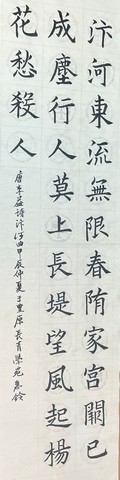 汴河東流無限春隋家宮闕已
成塵行人莫上長堤望風起楊
花愁殺人
唐李益詩汴河曲甲辰仲夏于豐原長青學苑